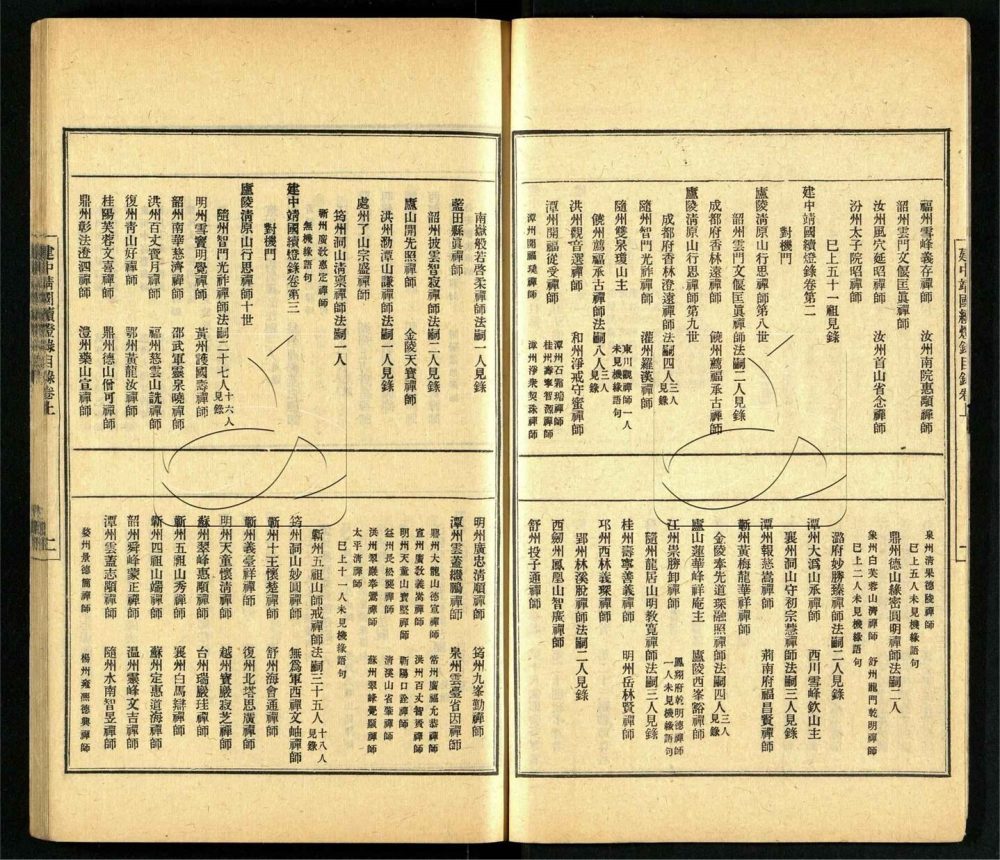 建中靖國續燈錄目錄卷上
福州雪峰義存禪師　汝州南院惠顒禪師
韶州雲門文偃匡眞禪師
汝州風穴延昭禪師　汝州首山省念禪師
汾州太子院昭禪師
巳上五十一祖見錄
建中靖國續燈錄卷第二
對機門
廬陵淸原山行思禪師第八世
韶州雲門文偃匡眞禪師法嗣二人見錄
成都府香林遠禪師　饒州薦福承古禪師
廬陵淸原山行思禪師第九世
成都府香林澄遠禪師法嗣四人三人見錄
隨州智門光祚禪師　灌州羅漢禪師
隨州雙泉瓊山主　東川觀禪師一人未見機緣語句
饒州薦福承古禪師法嗣八人三人見錄
洪州觀音選禪師　和州淨戒守蜜禪師
潭州開福從受禪師　潭州石霜琦禪師
桂州壽寧智淵禪師
潭州開福璉禪師　漳州淨衆契珠禪師
泉州淸果德陵禪師
巳上五人未見機緣語句
鼎州德山緣密圓明禪師法嗣二人
泉州白芙蓉山濟禪師　舒州龍門乾明禪師
巳上二人未見機緣語句
潞府妙勝臻禪師法嗣二人見錄
潭州大潙山承禪師　西川雪峰欽山主
襄州洞山守初宗慧禪師法嗣三人見錄
潭州報慈嵩禪師　荊南府福昌賢禪師
蘄州黃梅龍華祥禪師
金陵奉先道琛融照禪師法嗣四人三人見錄
廬山蓮華峰祥庵主　廬陵西峯豁禪師
江州崇勝卸禪師　鳳翔府乾明德禪師一人未見機緣語句
隨州龍居山明教寬禪師法嗣三人見錄
桂州壽寧善義禪師　明州岳林賢禪師
邛州西林義琛禪師
郢州林溪脫禪師法嗣二人見錄
西劒州鳳凰山智廣禪師
舒州投子通禪師
南嶽般若啓柔禪師法嗣一人見錄
藍田縣眞禪師
韶州披雲智寂禪師法嗣二人見錄
廬山開先照禪師　金陵天寶禪師
洪州泐潭山謙禪師法嗣一人見錄
處州了山宗盛禪師
筠州洞山淸稟禪師法嗣一人
蘄州廣敎惠定禪師
無機緣語句
建中靖國續燈錄卷第三
對機門
廬陵淸原山行思禪師十世
隨州智門光祚禪師法嗣二十七人十六人見錄
明州雪竇明覺禪師　黃州護國壽禪師
韶州南華慈濟禪師　邵武軍靈泉曉禪師
洪州百丈寶月禪師　福州慈雲山詵禪師
復州靑山好禪師　鄂州黃龍汝禪師
桂陽芙蓉文喜禪師　鼎州德山僧可禪師
鼎州彰法澄泗禪師　澧州藥山宣禪師
明州廣忠淸順禪師　筠州九峯勤禪師
潭州雲蓋繼鵬禪師　泉州雲臺省因禪師
鼎州大龍山德宣禪師　常州廣福允恭禪師
宣州廣敎義嵩禪師　洪州百丈智贇禪師
明州天童山寶堅禪師　蘄陽口詮禪師
益州長松龔禪師　淸溪山省榮禪師
洪州翠巖奉鸞禪師　蘇州翠峰覺顯禪師
太平淸禪師
巳上十一人未見機緣語句
蘄州五祖山師戒禪師法嗣三十五人十八人見錄
筠州洞山妙圓禪師　無爲軍西禪文岫禪師
蘄州十王懷楚禪師　舒州海會通禪師
蘄州義臺祥禪師　復州北塔思廣禪師
明州天童懷淸禪師　越州寶嚴寂芝禪師
蘇州翠峰惠顒禪師　台州瑞巖珪禪師
蘄州五祖山秀禪師　襄州白馬辯禪師
蘄州四祖山端禪師　蘇州定惠道海禪師
韶州舜峰蒙正禪師　溫州靈峰文吉禪師
潭州雲蓋志顒禪師　隨州水南智昱禪師
婺州景德簡禪師　楊州雍熙德興禪師
建中靖國續燈錄目錄卷上